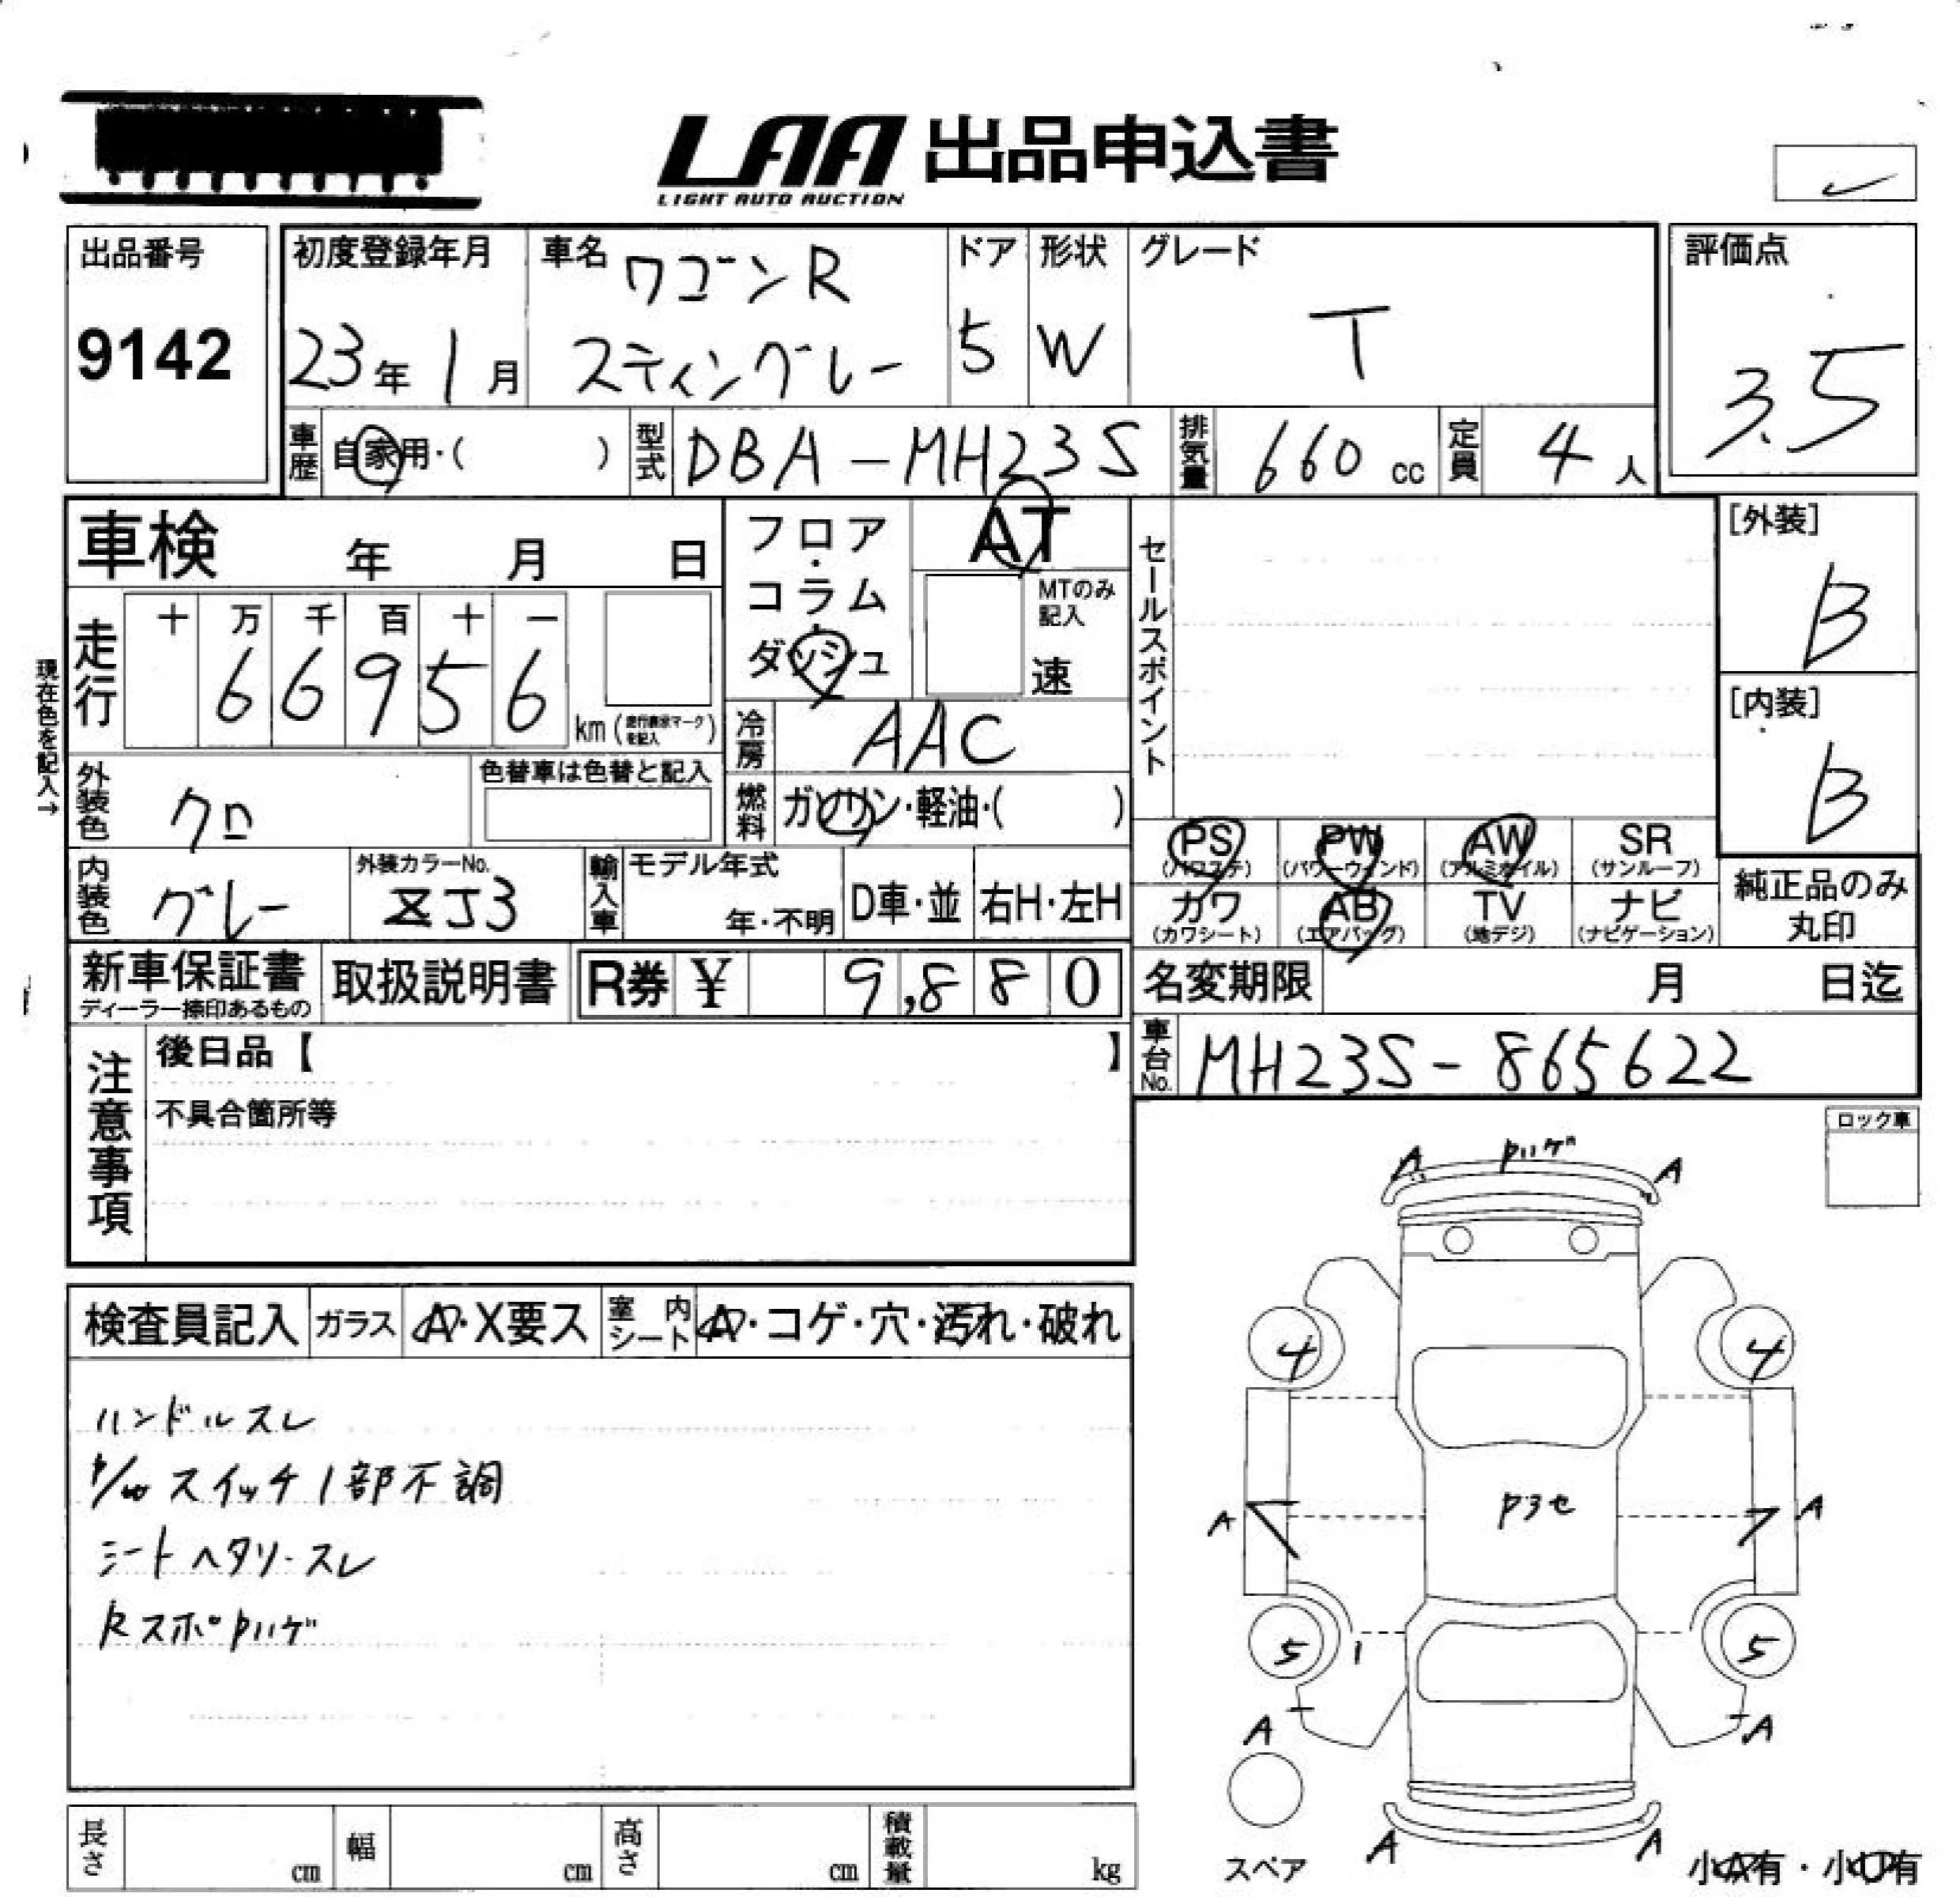 LAA 出品申込書
LIGHT AUTO AUCTION
出品番号
9142
初度登録年月
23年 1月
車名
ワゴンR
スティングレー
ドア
5
形状
W
グレード
T
評価点
3.5
車歴 自家用・( )
型式 DBA-MH23S
排気量 660 cc
定員 4 人
車検 年 月 日
フロア・コラム・ダッシュ
AT
MTのみ記入
速
セールスポイント
[外装]
B
[内装]
B
現在色を記入→
走行
十 万 千 百 十 一
6 6 9 5 6
km (走行表示マークを記入)
冷房 AAC
燃料 ガソリン・軽油・( )
外装色 クロ
色替車は色替と記入
内装色 グレー
外装カラーNo.
ZJ3
輸入車 モデル年式
年・不明
D車・並
右H・左H
PS (パワステ)
PW (パワーウィンド)
AW (アルミホイル)
SR (サンルーフ)
カワ (カワシート)
AB (エアバッグ)
TV (地デジ)
ナビ (ナビゲーション)
純正品のみ丸印
新車保証書
ディーラー捺印あるもの
取扱説明書
R券 ¥ 9,880
名変期限 月 日迄
車台No. MH23S-865622
注意事項
後日品【 】
不具合箇所等
ロック車
検査員記入
ガラス A・X要ス
室内シート A・コゲ・穴・汚れ・破れ
ハンドルスレ
P/W スイッチ1部不調
シートヘタリ・スレ
Rスポ Pハゲ
A Pハゲ A
4 4
A Pヨセ A
5 1 5
A A
A A
スペア
小A有・小U有
長さ cm
幅 cm
高さ cm
積載量 kg